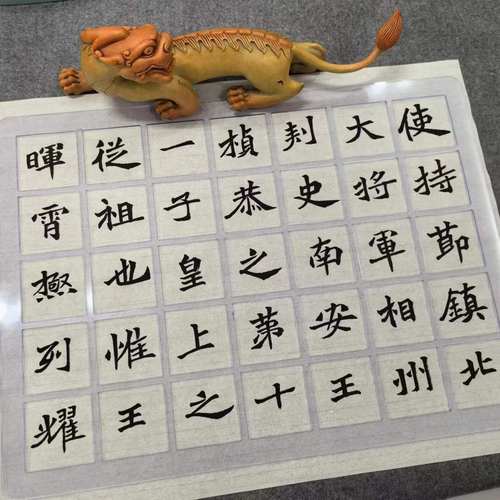 使持節鎮北
大將軍相州
刾史南安王
楨恭之第十
一子皇上之
從祖也惟王
暉霄極列耀